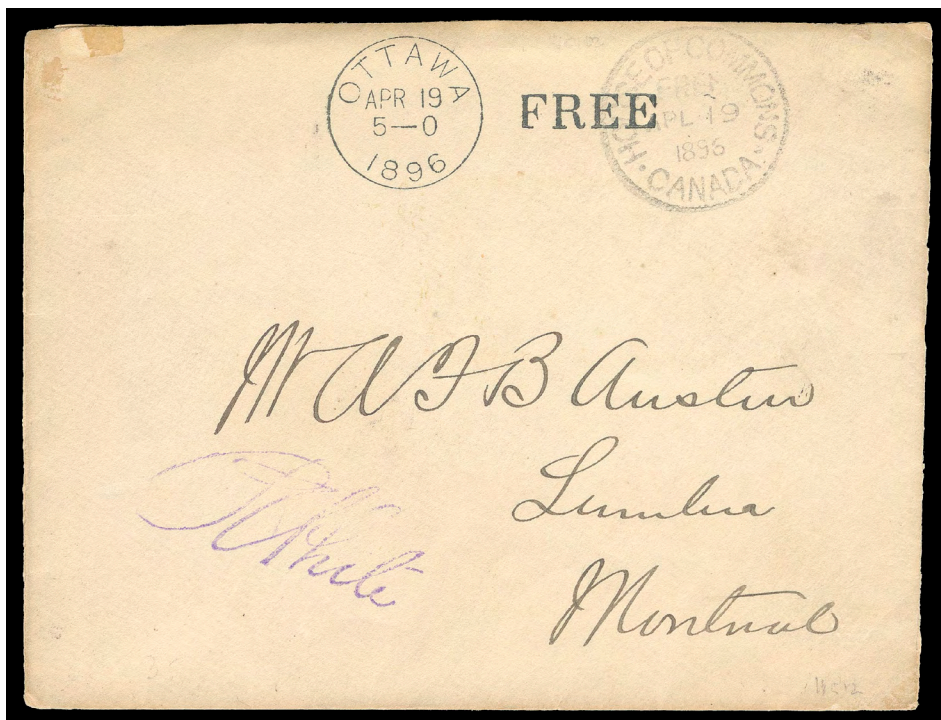 OTTAWA
APR 19
5—0
1896
FREE
HOUSE OF COMMONS
FREE
APL 19
1896
CANADA
Mr A F B Austin
Montreal
White